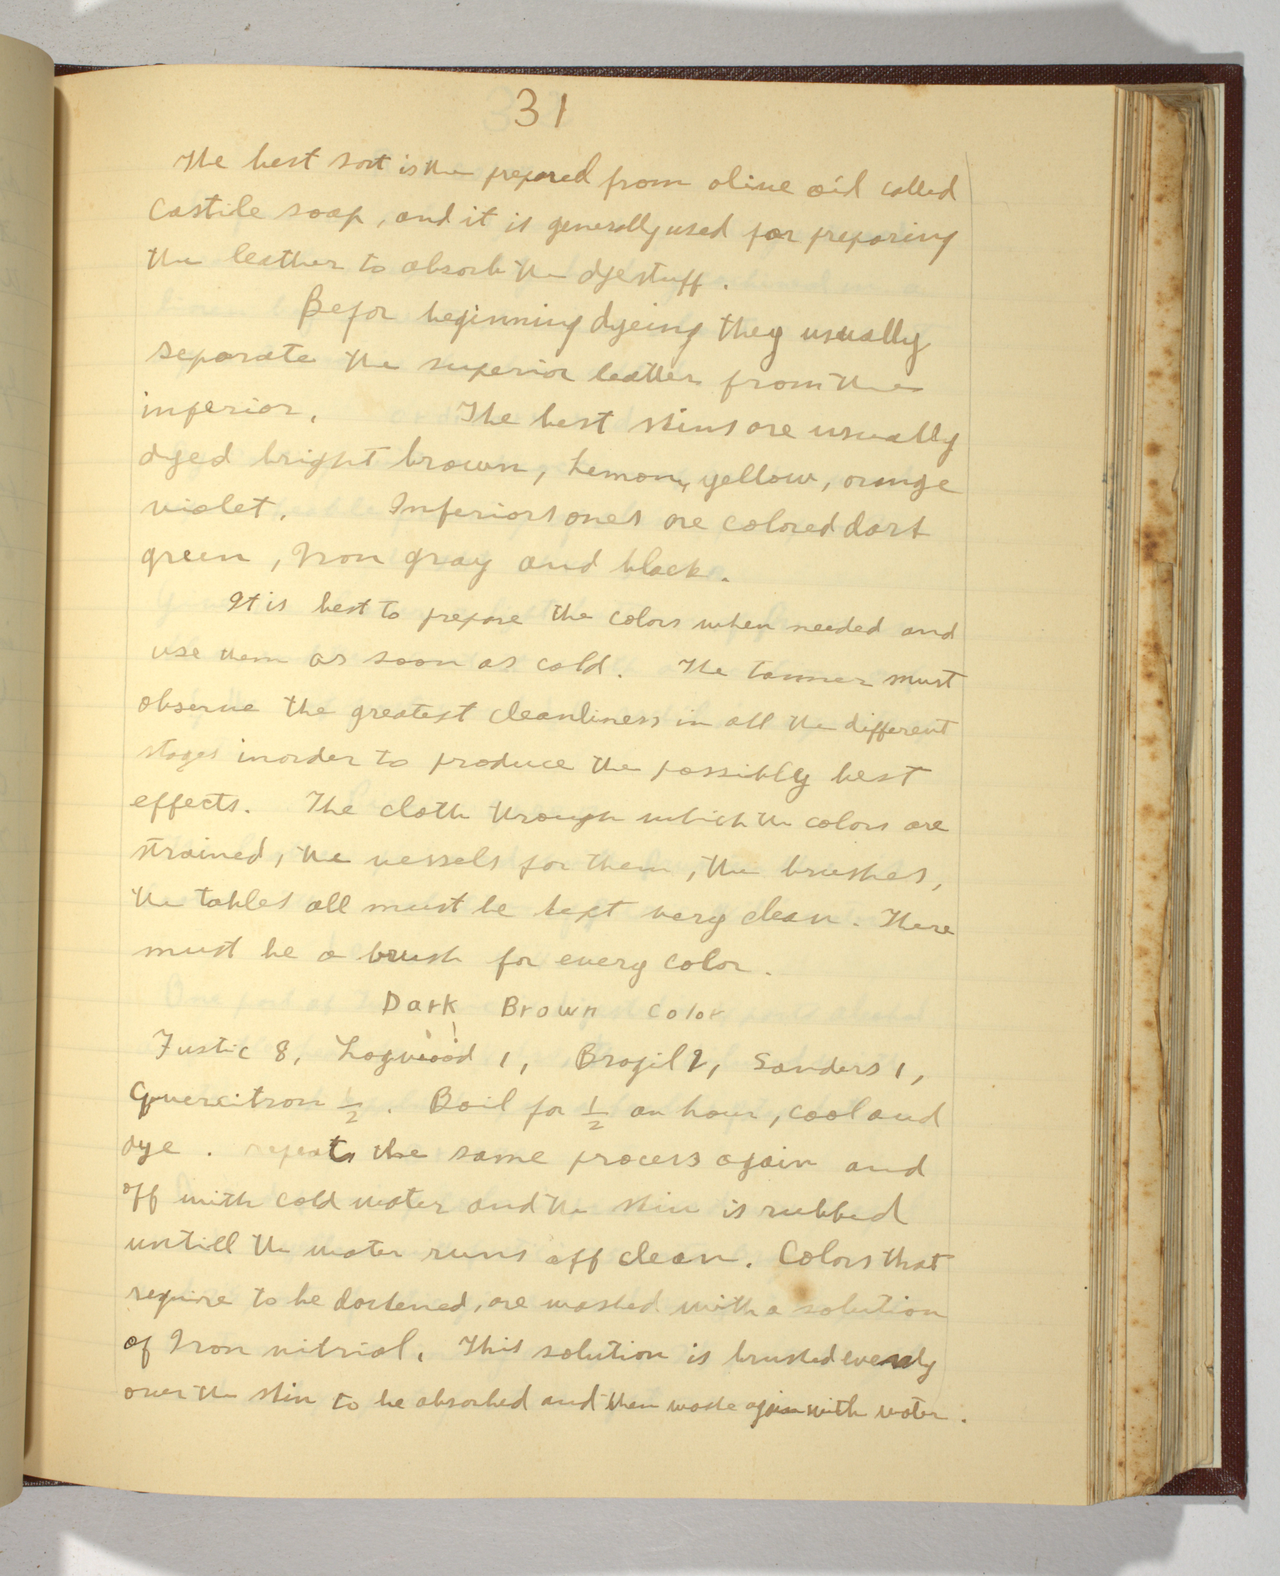 31
The best sort is the prepared from olive oil called
Castile soap, and it is generally used for preparing
the leather to absorb the dyestuff.
Befor beginning dyeing they usually
separate the superior leather from the
inferior. The best skins are usually
dyed bright brown, Lemon, yellow, orange
violet. Inferiors ones are colored dark
green, Iron gray and black.
It is best to prepare the colors when needed and
use them as soon as cold. The tanner must
observe the greatest cleanliness in all the different
stages inorder to produce the possibly best
effects. The cloth through which the colors are
strained, the vessels for them, the brushes,
the tables all must be kept very clean. There
must be a brush for every color.
Dark Brown Color
Fustic 8, Logwood 1, Brazil 2, Sanders 1,
Quercitron 1/2. Boil for 1/2 an hour, cool and
dye. repeat the same process again and
off with cold water and the skin is rubbed
untill the water runs off clean. Colors that
require to be darkened, are washed with a solution
of Iron vitriol. This solution is brushed evenly
over the skin to be absorbed and then washe again with water.